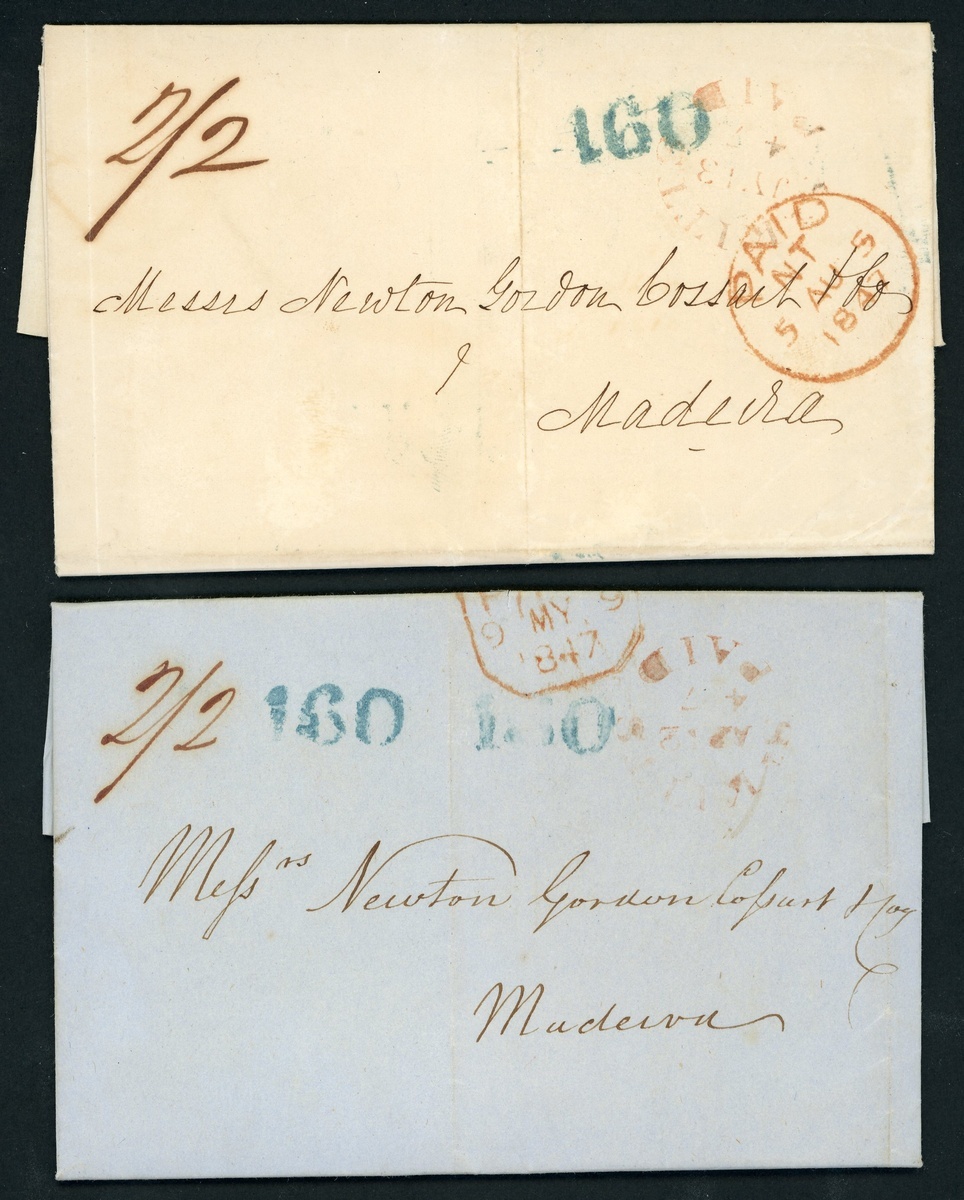 2/2
160
PAID
5 NT 5
AU
184
Messrs Newton Gordon Cossart & Co
Madeira
2/2
160
160
9 MY 9
1847
PAID
Messrs Newton Gordon Cossart & Coy
Madeira